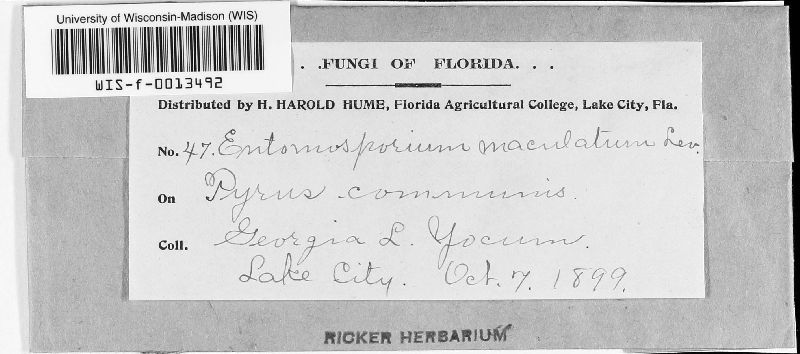 University of Wisconsin-Madison (WIS)
WIS-f-0013492
. . .FUNGI OF FLORIDA. . .
Distributed by H. HAROLD HUME, Florida Agricultural College, Lake City, Fla.
No. 47. Entomosporium maculatum Lev.
On Pyrus communis.
Coll. Georgia L. Yocum.
Lake City. Oct. 7. 1899.
RICKER HERBARIUM